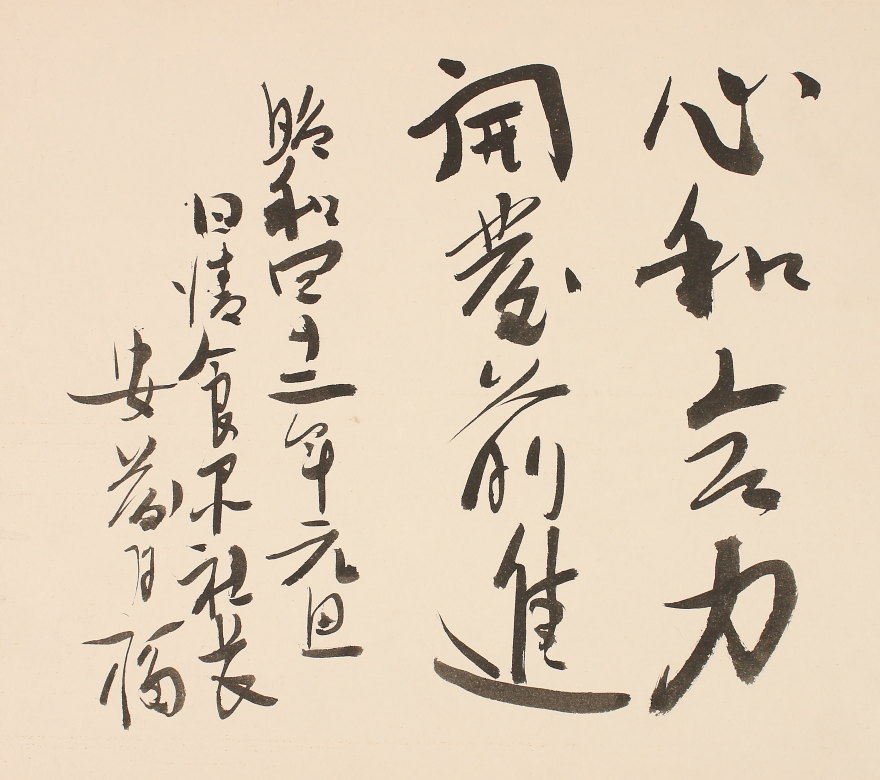 心和合力
開発前進
昭和四十二年元旦
日清食品社長
安藤百福